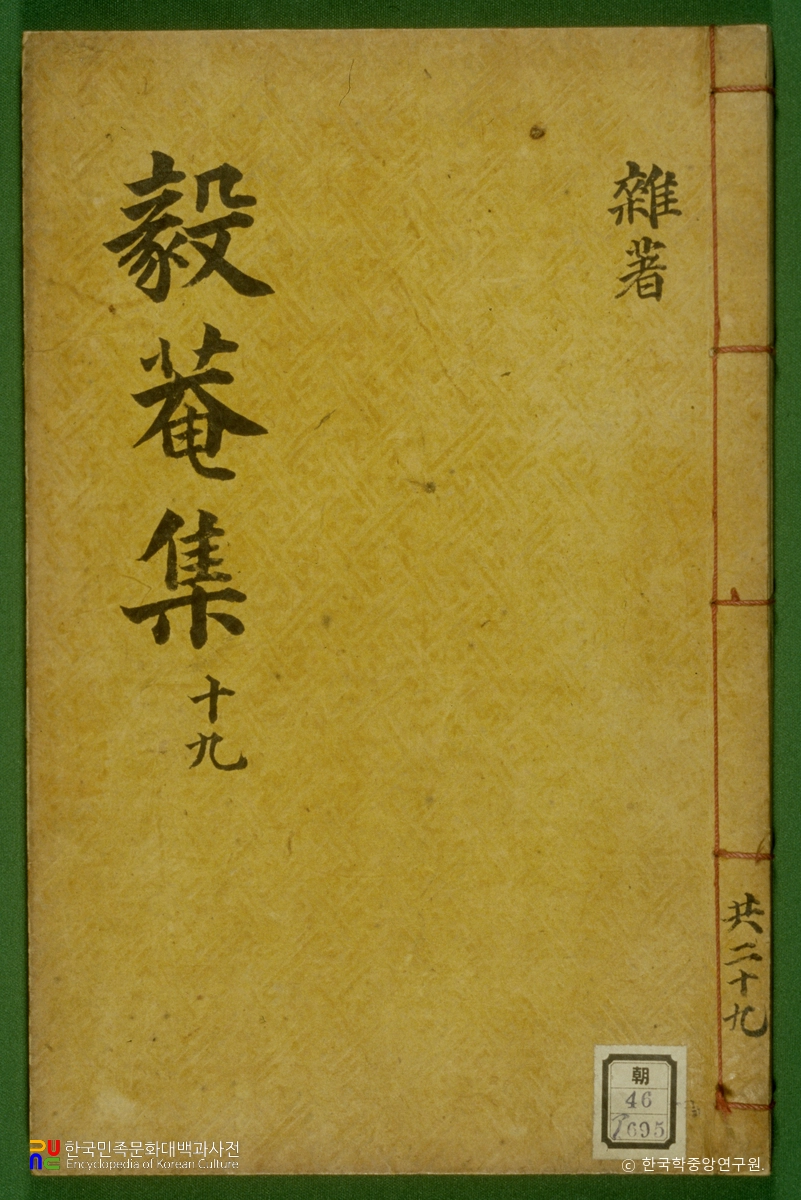 雜著
毅菴集 十九
共二十九
朝
46
695
한국민족문화대백과사전
Encyclopedia of Korean Culture
© 한국학중앙연구원.